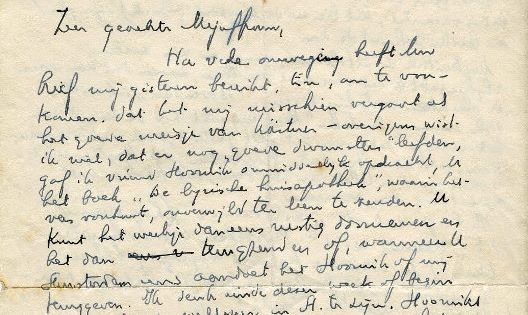 Zeer geachte Mejuffrouw,
Na vele omwegen heeft Uw
brief mij gisteren bereikt. En, om te voor-
komen. dat het mij misschien vergaat als
het goede meisje van Köster – overigens wist
ik wel, dat er nog "goede" leefden,
gaf ik vriend Hoornik onmiddellijk opdracht, U
het boek "De lyrische huisapotheek", waarin het
vers voorkomt, te leen te zenden. U
kunt het werkje dan eens rustig doornemen en
het dan terugzenden of, wanneer U
Amsterdam eens aandoet het Hoornik of mij
teruggeven. Ik denk einde dezer week of begin
in A. te zijn. Hoornik